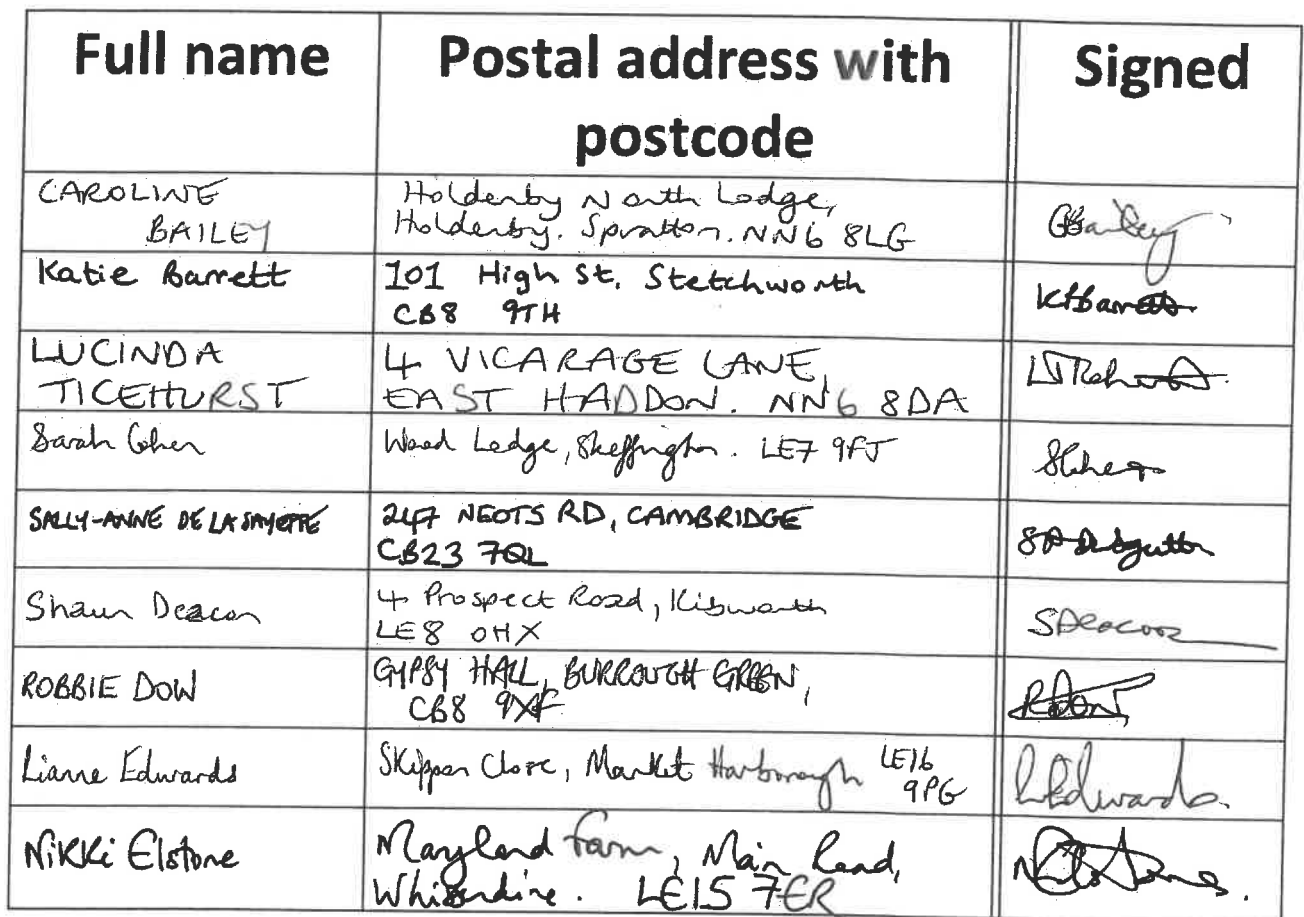 Full name Postal address with postcode Signed
CAROLINE BAILEY
Holdenby North Lodge,
Holdenby. Spratton. NN6 8LG
Katie Barrett
101 High St, Stetchworth
CB8 9TH
KBarrett
LUCINDA
TICEHURST
4 VICARAGE LANE,
EAST HADDON. NN6 8DA
Sarah Cohen
Wood Lodge, Skeffington. LE7 9FJ
SALLY-ANNE DE LA
247 NEOTS RD, CAMBRIDGE
CB23 7QL
Shaun Deacon
4 Prospect Road, Kibworth
LE8 0HX
SDeacon
ROBBIE DOW
GYPSY HALL, BURROUGH GREEN,
CB8 9XF
RDow
Lianne Edwards
Skipper Close, Market Harborough LE16
9PG
LEdwards.
Nikki Elstone
Maryland Farm, Main Road,
Whissendine. LE15 7ER